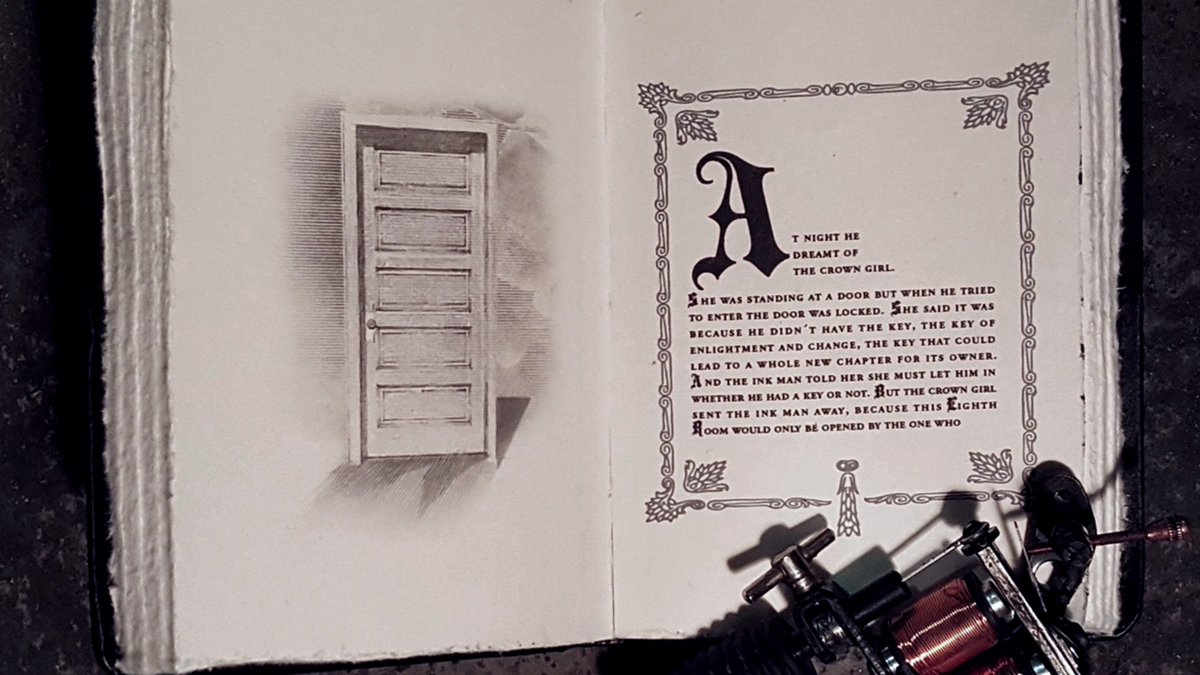 AT NIGHT HE
DREAMT OF
THE CROWN GIRL.
SHE WAS STANDING AT A DOOR BUT WHEN HE TRIED
TO ENTER THE DOOR WAS LOCKED. SHE SAID IT WAS
BECAUSE HE DIDN´T HAVE THE KEY, THE KEY OF
ENLIGHTMENT AND CHANGE, THE KEY THAT COULD
LEAD TO A WHOLE NEW CHAPTER FOR ITS OWNER.
AND THE INK MAN TOLD HER SHE MUST LET HIM IN
WHETHER HE HAD A KEY OR NOT. BUT THE CROWN GIRL
SENT THE INK MAN AWAY, BECAUSE THIS EIGHTH
ROOM WOULD ONLY BÉ OPENED BY THE ONE WHO